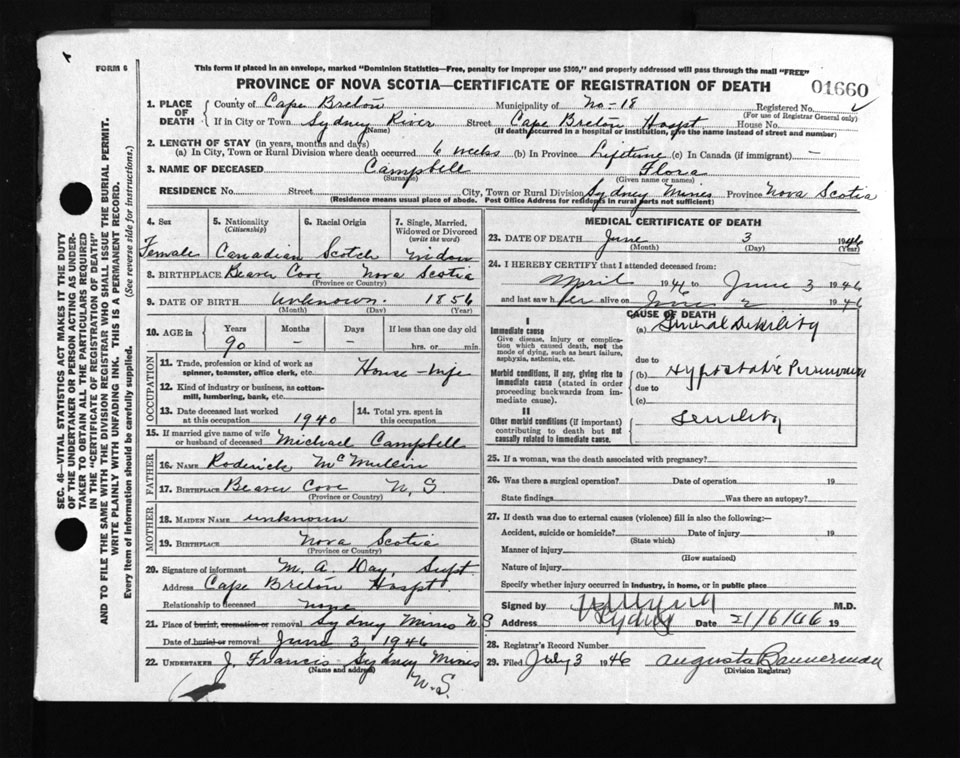 FORM 6
This form if placed in an envelope, marked "Dominion Statistics—Free, penalty for improper use $300," and properly addressed will pass through the mail "FREE"
PROVINCE OF NOVA SCOTIA—CERTIFICATE OF REGISTRATION OF DEATH
01660
1. PLACE OF DEATH County of Cape Breton Municipality of No-18 Registered No.
(For use of Registrar General only)
If in City or Town Sydney River Street Cape Breton Hospt House No.
(Name) (If death occurred in a hospital or institution, give the name instead of street and number)
2. LENGTH OF STAY (in years, months and days)
(a) In City, Town or Rural Division where death occurred 6 weeks (b) In Province Lifetime (c) In Canada (if immigrant) —
3. NAME OF DECEASED Campbell Flora
(Surname) (Given name or names)
RESIDENCE No. Street City, Town or Rural Division Sydney Mines Province Nova Scotia
(Residence means usual place of abode. Post Office Address for residents in rural parts not sufficient)
4. Sex
Female
5. Nationality
(Citizenship)
Canadian
6. Racial Origin
Scotch
7. Single, Married, Widowed or Divorced
(write the word)
Widow
8. BIRTHPLACE Beaver Cove Nova Scotia
(Province or Country)
9. DATE OF BIRTH unknown 1856
(Month) (Day) (Year)
10. AGE in Years Months Days If less than one day old
90 — — hrs. or min.
OCCUPATION
11. Trade, profession or kind of work as spinner, teamster, office clerk, etc. House-wife
12. Kind of industry or business, as cotton-mill, lumbering, bank, etc.
13. Date deceased last worked at this occupation 1940
14. Total yrs. spent in this occupation
15. If married give name of wife or husband of deceased Michael Campbell
FATHER
16. NAME Roderick McMullin
17. BIRTHPLACE Beaver Cove N.S.
(Province or Country)
MOTHER
18. MAIDEN NAME unknown
19. BIRTHPLACE Nova Scotia
(Province or Country)
20. Signature of informant M. A. Day, Supt.
Address Cape Breton Hospt.
Relationship to deceased none
21. Place of burial, cremation or removal Sydney Mines N S
Date of burial or removal June 3, 1946
22. UNDERTAKER J. Francis Sydney Mines
(Name and address)
N.S.
MEDICAL CERTIFICATE OF DEATH
23. DATE OF DEATH June 3 1946
(Month) (Day) (Year)
24. I HEREBY CERTIFY that I attended deceased from:
April 1946 to June 3 1946
and last saw her alive on June 2 1946
CAUSE OF DEATH
I
Immediate cause
Give disease, injury or complication which caused death, not the mode of dying, such as heart failure, asphyxia, asthenia, etc.
(a) General Debility
due to
Morbid conditions, if any, giving rise to immediate cause (stated in order proceeding backwards from immediate cause).
(b) Hypostatic Pneumonia
due to
(c)
II
Other morbid conditions (if important) contributing to death but not causally related to immediate cause.
Senility
25. If a woman, was the death associated with pregnancy?
26. Was there a surgical operation? Date of operation 19
State findings Was there an autopsy?
27. If death was due to external causes (violence) fill in also the following:—
Accident, suicide or homicide? Date of injury 19
(State which)
Manner of injury
(How sustained)
Nature of injury
Specify whether injury occurred in industry, in home, or in public place
Signed by M.D.
Address Sydney Date 21/6/46 19
28. Registrar's Record Number
29. Filed July 3 1946 Augusta Bannerman
(Division Registrar)
SEC. 46—VITAL STATISTICS ACT MAKES IT THE DUTY
OF THE UNDERTAKER OR PERSON ACTING AS UNDER-
TAKER TO OBTAIN ALL THE PARTICULARS REQUIRED
IN THE "CERTIFICATE OF REGISTRATION OF DEATH"
AND TO FILE THE SAME WITH THE DIVISION REGISTRAR WHO SHALL ISSUE THE BURIAL PERMIT.
WRITE PLAINLY WITH UNFADING INK. THIS IS A PERMANENT RECORD.
Every item of information should be carefully supplied. (See reverse side for instructions.)